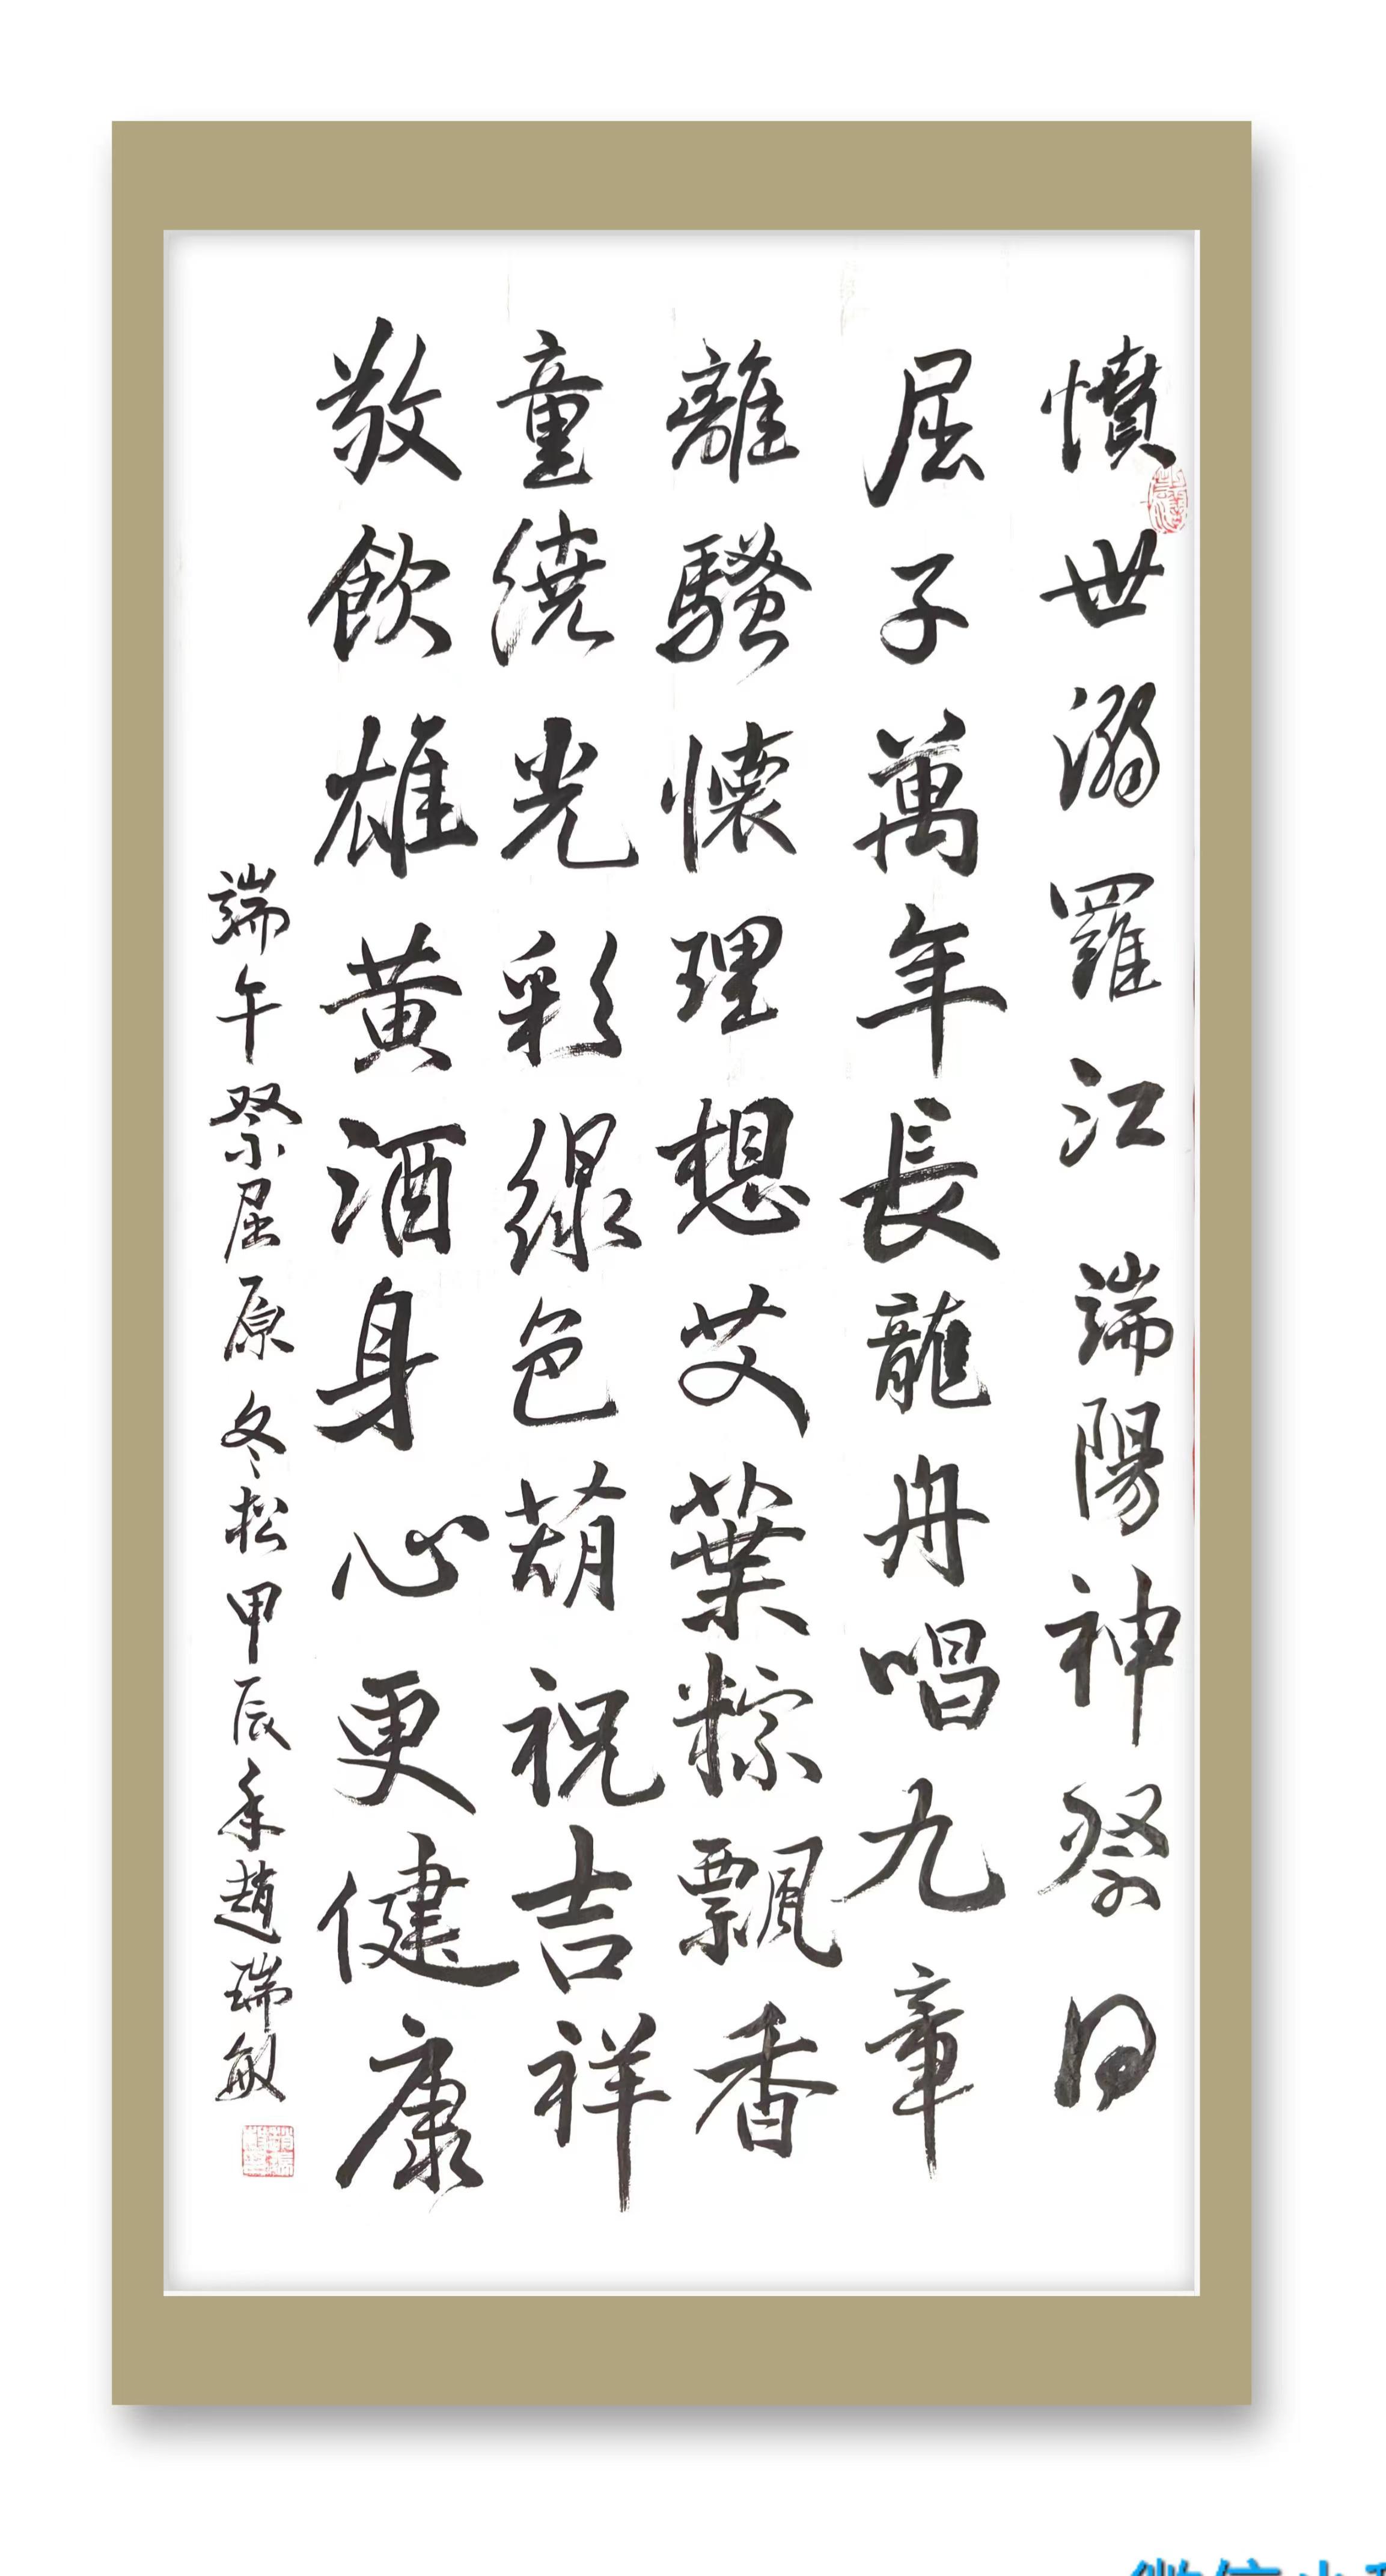 憤世溺羅江 端陽神祭日
屈子萬年長龍舟唱九章
離騷懷理想艾葉粽飄香
童繞光彩線色葫祝吉祥
敬飲雄黄酒身心更健康
端午祭屈原冬松甲辰年趙瑞敏